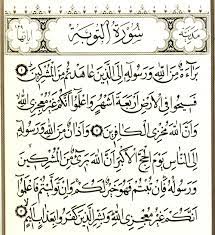 مدنية
سُورَةُ التَّوْبَة
آياتها
بَرَآءَةٌ مِّنَ اللَّهِ وَرَسُولِهِ إِلَى الَّذِينَ عَاهَدتُّم مِّنَ الْمُشْرِكِينَ
فَسِيحُوا فِي الْأَرْضِ أَرْبَعَةَ أَشْهُرٍ وَاعْلَمُوا أَنَّكُمْ غَيْرُ مُعْجِزِي اللَّهِ
وَأَنَّ اللَّهَ مُخْزِي الْكَافِرِينَ وَأَذَانٌ مِّنَ اللَّهِ وَرَسُولِهِ
إِلَى النَّاسِ يَوْمَ الْحَجِّ الْأَكْبَرِ أَنَّ اللَّهَ بَرِيءٌ مِّنَ الْمُشْرِكِينَ
وَرَسُولُهُ فَإِن تُبْتُمْ فَهُوَ خَيْرٌ لَّكُمْ وَإِن تَوَلَّيْتُمْ فَاعْلَمُوا
أَنَّكُمْ غَيْرُ مُعْجِزِي اللَّهِ وَبَشِّرِ الَّذِينَ كَفَرُوا بِعَذَابٍ أَلِيمٍ